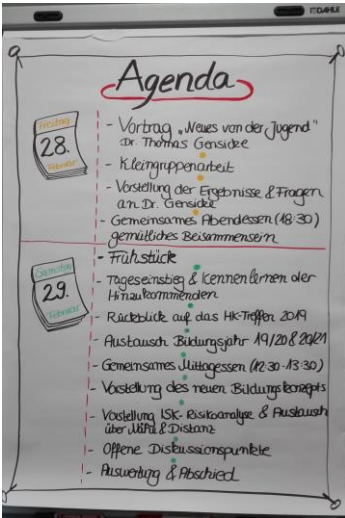 DAHLE
Agenda
Freitag
28.
Februar
- Vortrag „Neues von der Jugend"
Dr. Thomas Gensicke
- Kleingruppenarbeit
- Vorstellung der Ergebnisse & Fragen
an Dr. Gensicke
- Gemeinsames Abendessen (18:30)
gemütliches Beisammensein
Samstag
29.
Februar
- Frühstück
- Tageseinstieg & Kennenlernen der
Hinzukommenden
- Rückblick auf das HK-Treffen 2019
- Austausch Bildungsjahr 19/20 & 20/21
- Gemeinsames Mittagessen (12:30-13:30)
- Vorstellung des neuen Bildungskonzepts
- Vorstellung ISK-Risikoanalyse & Austausch
über Nähe & Distanz
- Offene Diskussionspunkte
- Auswertung & Abschied